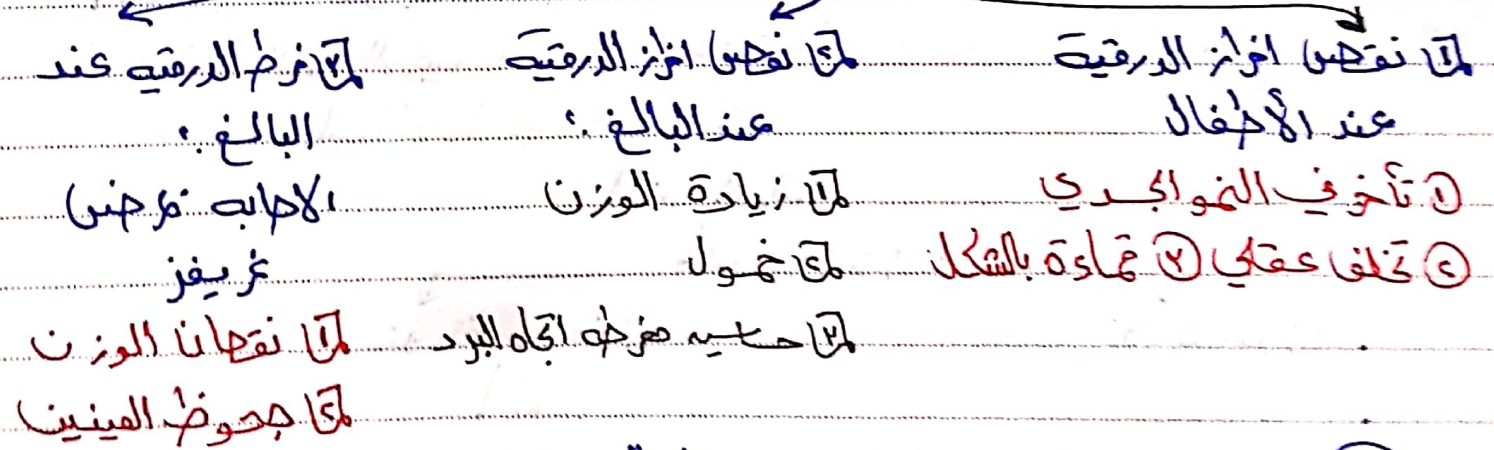 ١ نقص افراز الدرقية
عند الأطفال
① تأخر في النمو الجسدي
② تخلف عقلي ③ قماءة بالشكل
٢ نقص افراز الدرقية
عند البالغ :
١ زيادة الوزن
٢ خمول
٣ حساسيه مفرطه اتجاه البرد
٣ فرط الدرقيه عند
البالغ :
الاصابه بمرض
غريفز
١ نقصان الوزن
٢ جحوظ العينين